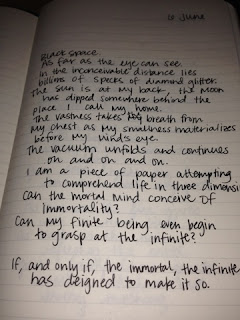 6 June
Black space.
As far as the eye can see.
In the inconceivable distance lies
billions of specks of diamond glitter.
The sun is at my back, the moon
has dipped somewhere behind the
place I call my home.
The vastness takes breath from
my chest as my smallness materializes
before my mind's eye.
The vacuum unfolds and continues
on and on and on.
I am a piece of paper attempting
to comprehend life in three dimensi
Can the mortal mind conceive of
Immortality?
Can my finite being even begin
to grasp at the infinite?
If, and only if, the immortal, the infinite
has deigned to make it so.